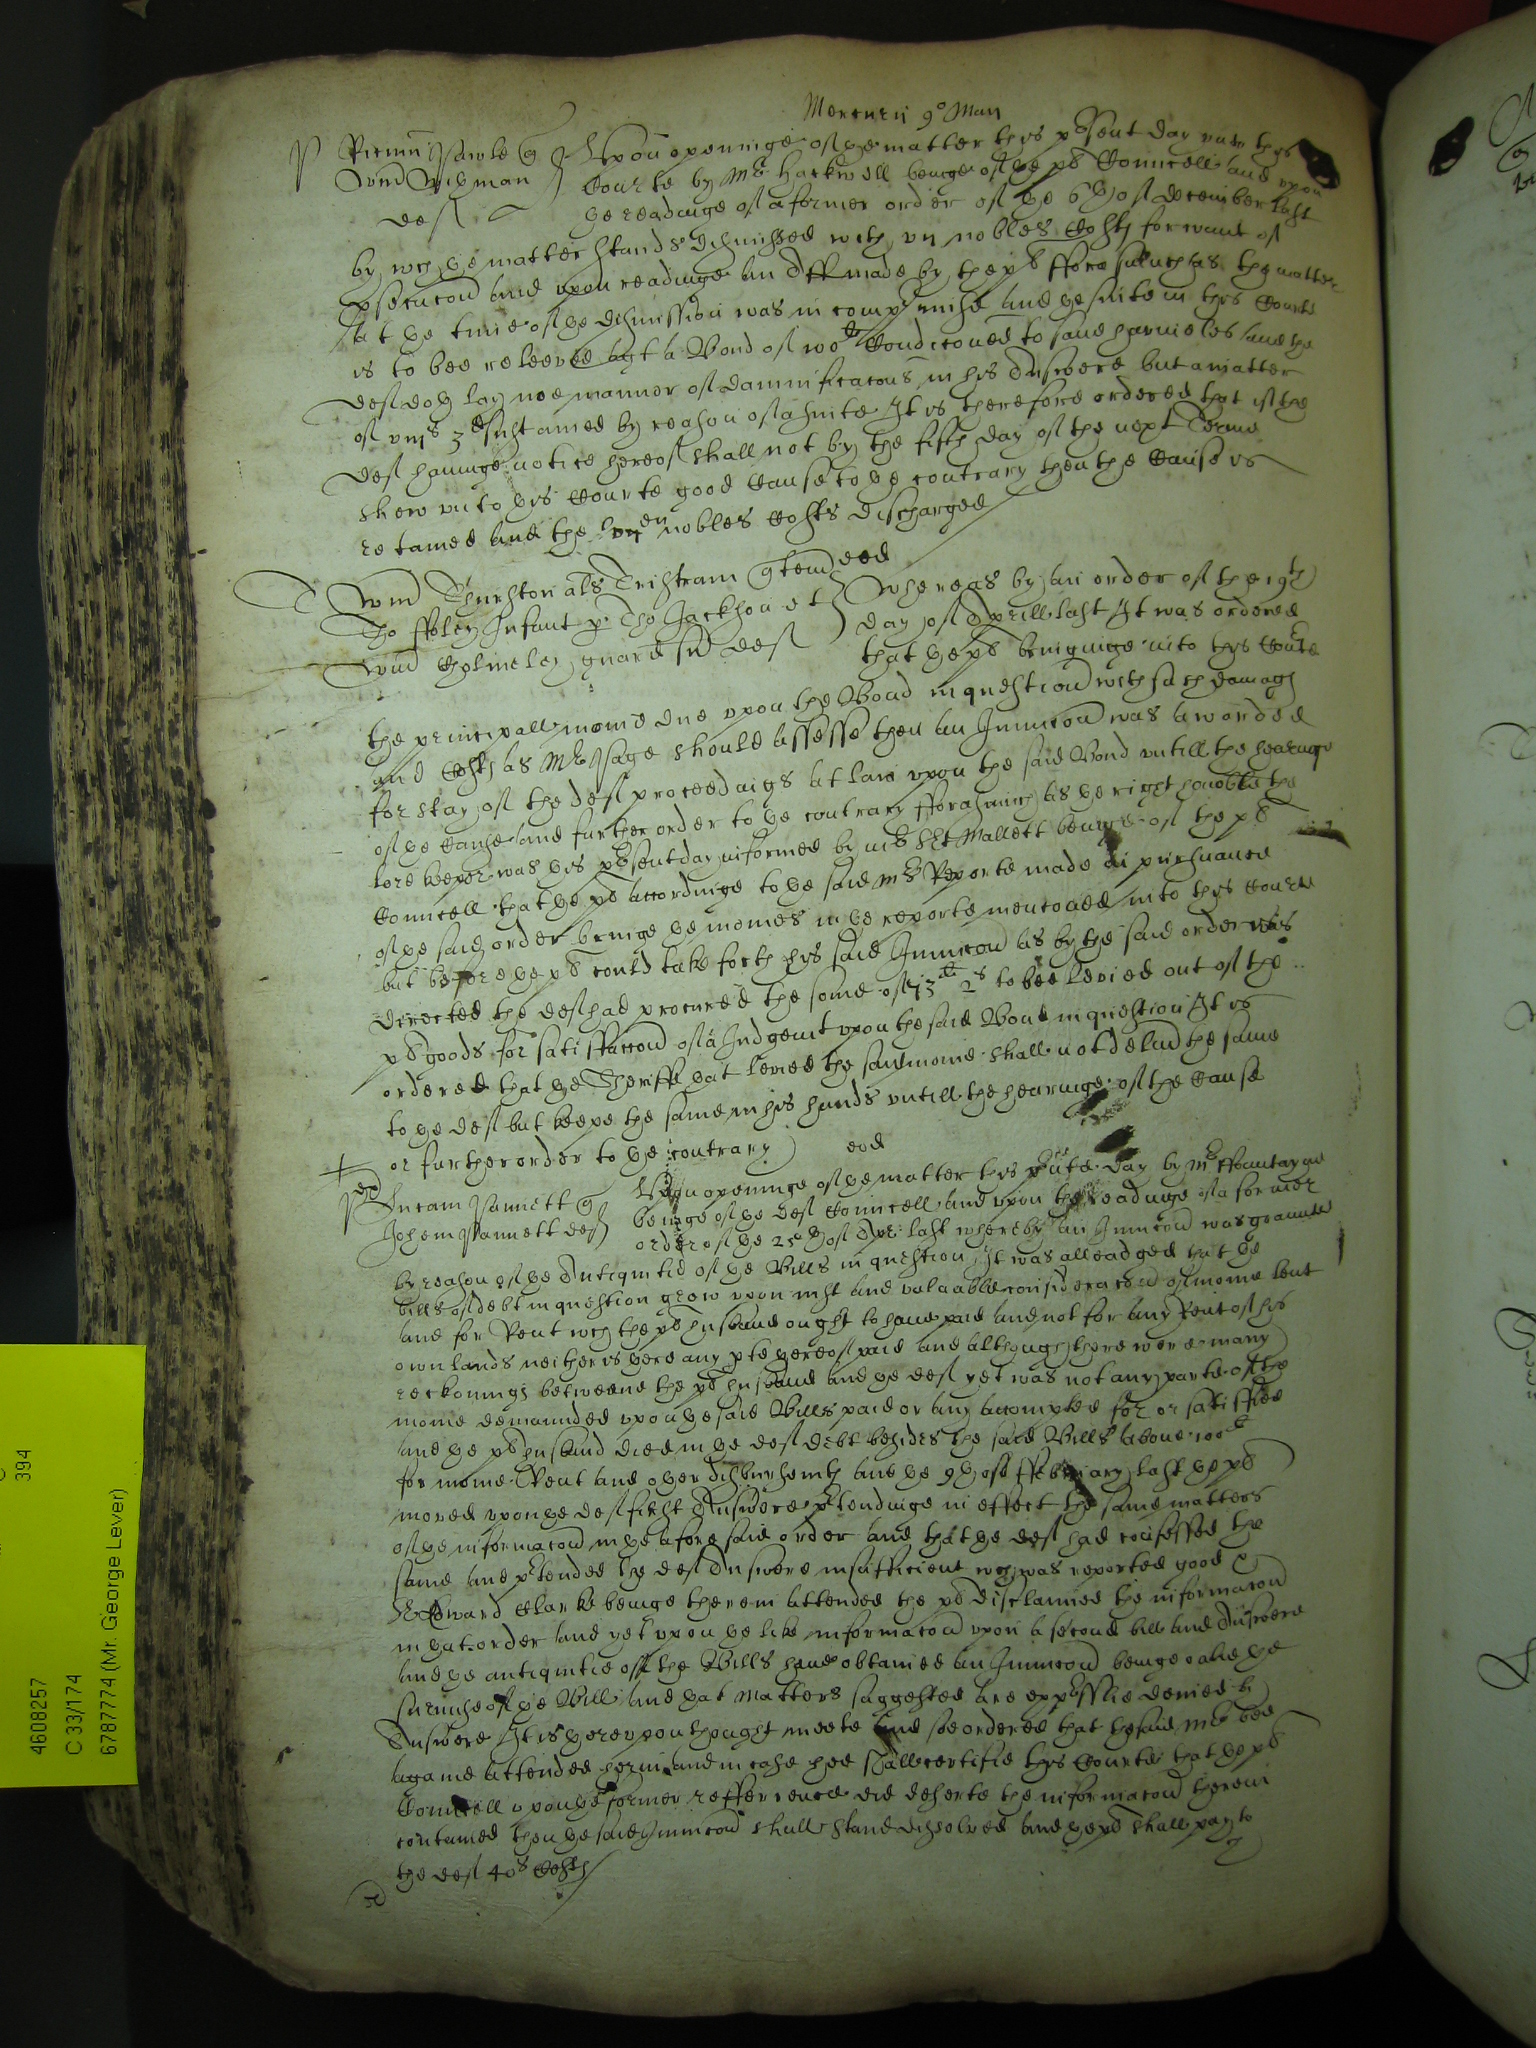 Mercurij 9o Maii
P
Vpon openinge of ye matter this pñt day vnto this
Wm Wigman
Courte by Mr Hackwell beinge of ye pls Councell and vpon
def
ye readinge of a former order of ye 6th of December last
by wch ye matter stands dismissed with vij nobles Costs for want of
psecucon and vpon readinge an Aff made by the pl fforasmuch as the matter
at ye time of ye dismission was in compromise and ye suite in this Courte
is to bee releeved agt a Bond of 100li Condiconed to save harmeles and the
def doth lay noe manner of damnificacons in his Answere but a matter
of vijs 3d sustained by reason of a suite It is therefore ordered that if the
def havinge notice hereof shall not by the fifth day of the next Terme
shew vnto this Courte good Cause to ye contrary then the Cause is
retained and the vij nobles Costs discharged
eod
Wm Thurston als Tristram
Tho ffoley Infant p Tho Jackson et
Wm Cholmeley guard def
Whereas by an order of the 19th
day of Aprill last It was ordered
that ye pl bringinge into this Courte
the principall monie due vpon the Bond in question with such damags
and Costs as Mr Page should assesse then an Iniuncon was awarded
for stay of the def proceedings at law vpon the said Bond vntill the hearinge
of ye Cause and further order to ye contrary fforasmuch as ye right honoble the
lord keeper was this pñt day informed by mr Mallett beinge of the pls
Councell that ye pl accordinge to ye said Mrs Reporte made in pursuance
of ye said order bringe ye monies in ye reporte menconed into this Courte
but before ye pl could take forth his said Iniuncon as by the said order was
directed the def had procured the some of 13li 2s to bee levied out of the
pls goods for satisfaccon of a Iudgemt vpon the said Bond in question It is
ordered that ye Sheriffe yat levied the said monie shall not deliver the same
to ye def but keepe the same in his hands vntill the hearinge of the Cause
or further order to ye contrary
eod
Pannett
Pannett def
Vpon openinge of ye matter this pñte day by Mr ffountayne
beinge of ye def Councell and vpon the readinge of a former
order of ye 25th of Apr last whereby an Iniuncon was graunted
by reason of ye Antiquitie of ye Bills in question, It was alleadged that ye
bills of debt in question grew vpon iust and valuable consideracon of monie lent
and for Rent wch the pls husband ought to have paid and not for any Rent of his
own lands neither is there any pte thereof paid and although there were many
reckonings betweene the pls husband and ye def yet was not any parte of the
monie demaunded vpon ye said Bills paid or any accompted for or satisfied
and ye pls husband died in ye def debt besides the said Bills above 100li
for monie Rent and other disbursemts and ye 9th of ffebruary last ye pl
moved vpon ye def first Answere ptendinge in effect the same matters
of ye informacon in ye aforesaid order and that ye def had confessed the
same and ptended the def Answere insufficient wch was reported good &
Sr Edward Clarke beinge therein attended the pl disclaimed the informacon
in yat order and yet vpon ye like informacon vpon a second bill and Answere
and ye antiquitie of the Bills have obtained an Iniuncon beinge onlie ye
surmise of ye Bill and yat matters suggested are expresslie denied by
Answere It is therevpon thought meete and soe ordered that the said Mr bee
againe attended herein and in case hee shall certifie this Courte that ye pls
Councell vpon ye former refference did deserte the informacon therein
contained then ye said Iniuncon shall stand dissolved and ye pl shall pay to
the def 40s Costs
394
4608257
C 33/174
6787774 (Mr. George Lever)